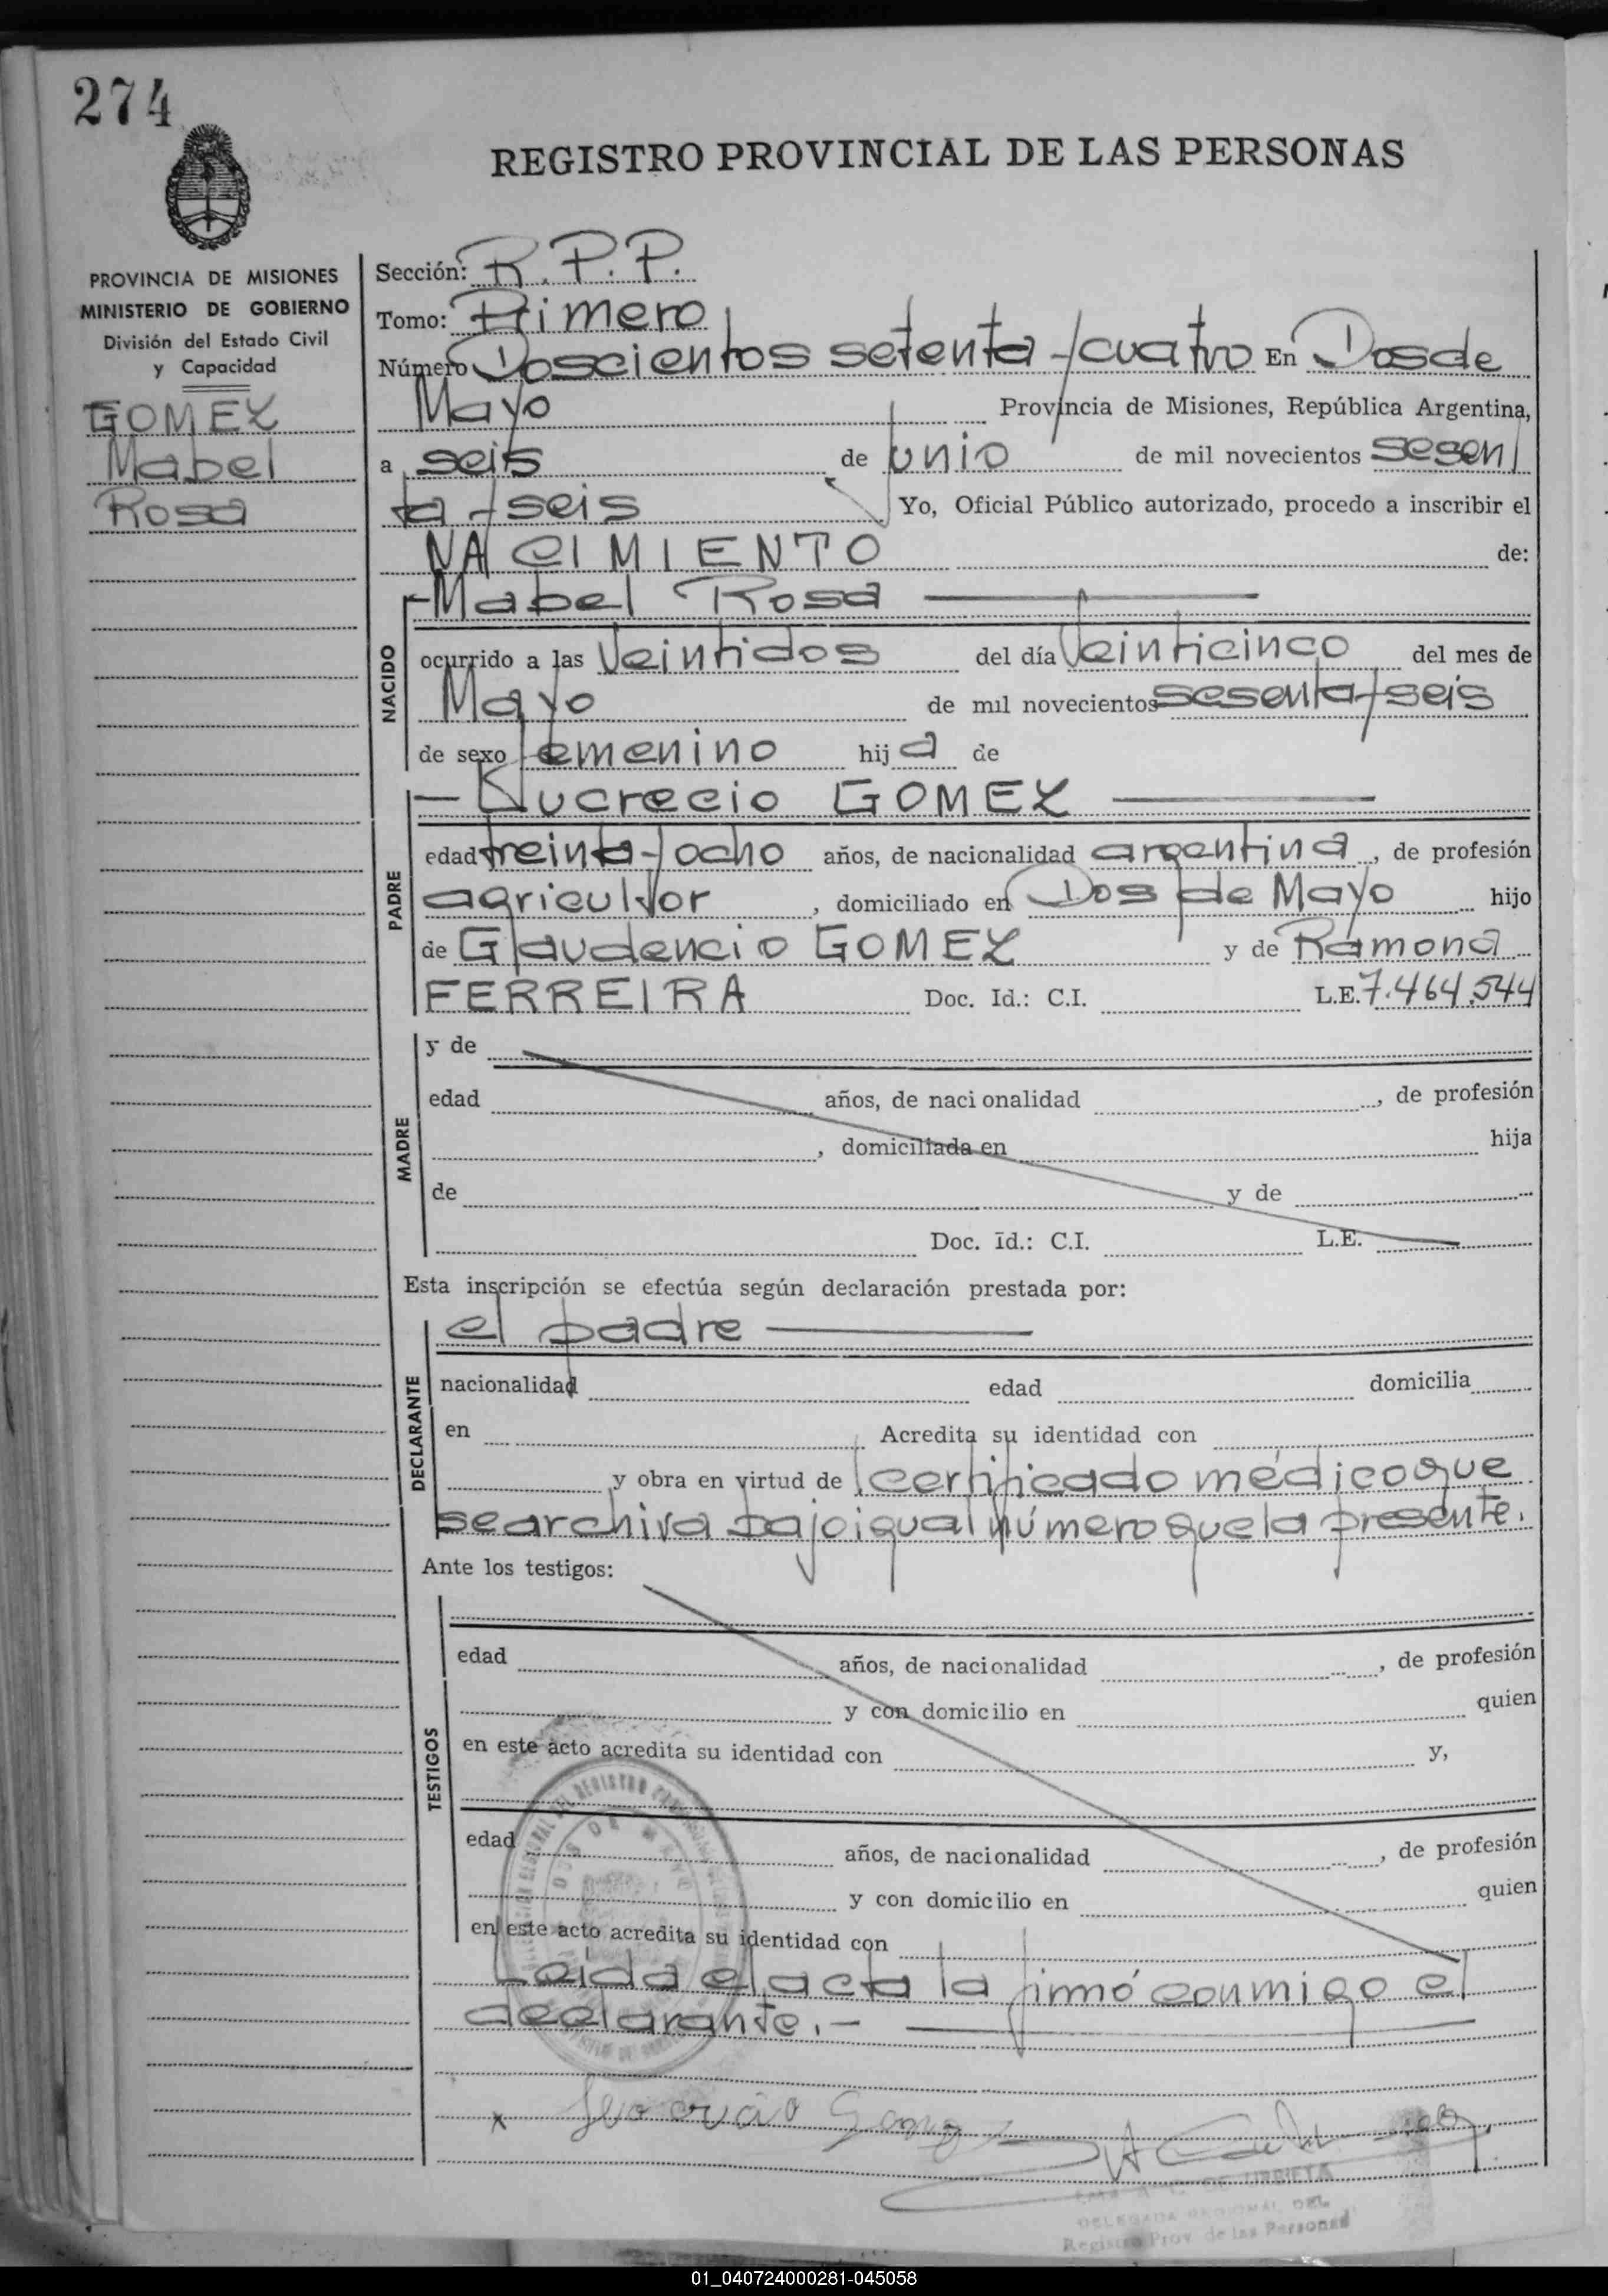 274
REGISTRO PROVINCIAL DE LAS PERSONAS
PROVINCIA DE MISIONES
MINISTERIO DE GOBIERNO
División del Estado Civil
y Capacidad
GOMEZ
Mabel
Rosa
Sección: R.P.P.
Tomo: Primero
Número Doscientos setenta y cuatro En Dos de
Mayo Provincia de Misiones, República Argentina,
a seis de junio de mil novecientos sesen
ta y seis Yo, Oficial Público autorizado, procedo a inscribir el
NACIMIENTO de:
NACIDO
Mabel Rosa
ocurrido a las Veintidos del día Veinticinco del mes de
Mayo de mil novecientos sesenta y seis
de sexo femenino hija de
PADRE
Lucrecio GOMEZ
edad treinta y ocho años, de nacionalidad argentina, de profesión
agricultor, domiciliado en Dos de Mayo hijo
de Glaudencio GOMEZ y de Ramona
FERREIRA Doc. Id.: C.I. L.E. 7.464.544
MADRE
y de
edad años, de nacionalidad , de profesión
, domiciliada en hija
de y de
Doc. Id.: C.I. L.E.
Esta inscripción se efectúa según declaración prestada por:
DECLARANTE
el padre
nacionalidad edad domicilia
en Acredita su identidad con
y obra en virtud de certificado médico que
se archiva bajo igual número que la presente.
Ante los testigos:
TESTIGOS
edad años, de nacionalidad , de profesión
y con domicilio en quien
en este acto acredita su identidad con y,
edad años, de nacionalidad , de profesión
y con domicilio en quien
en este acto acredita su identidad con
Leída el acta la firmó conmigo el
declarante.-
DOS DE MAYO
x
DE URRIETA
DELEGADA REGIONAL DEL
Registro Prov. de las Personas
01_040724000281-045058